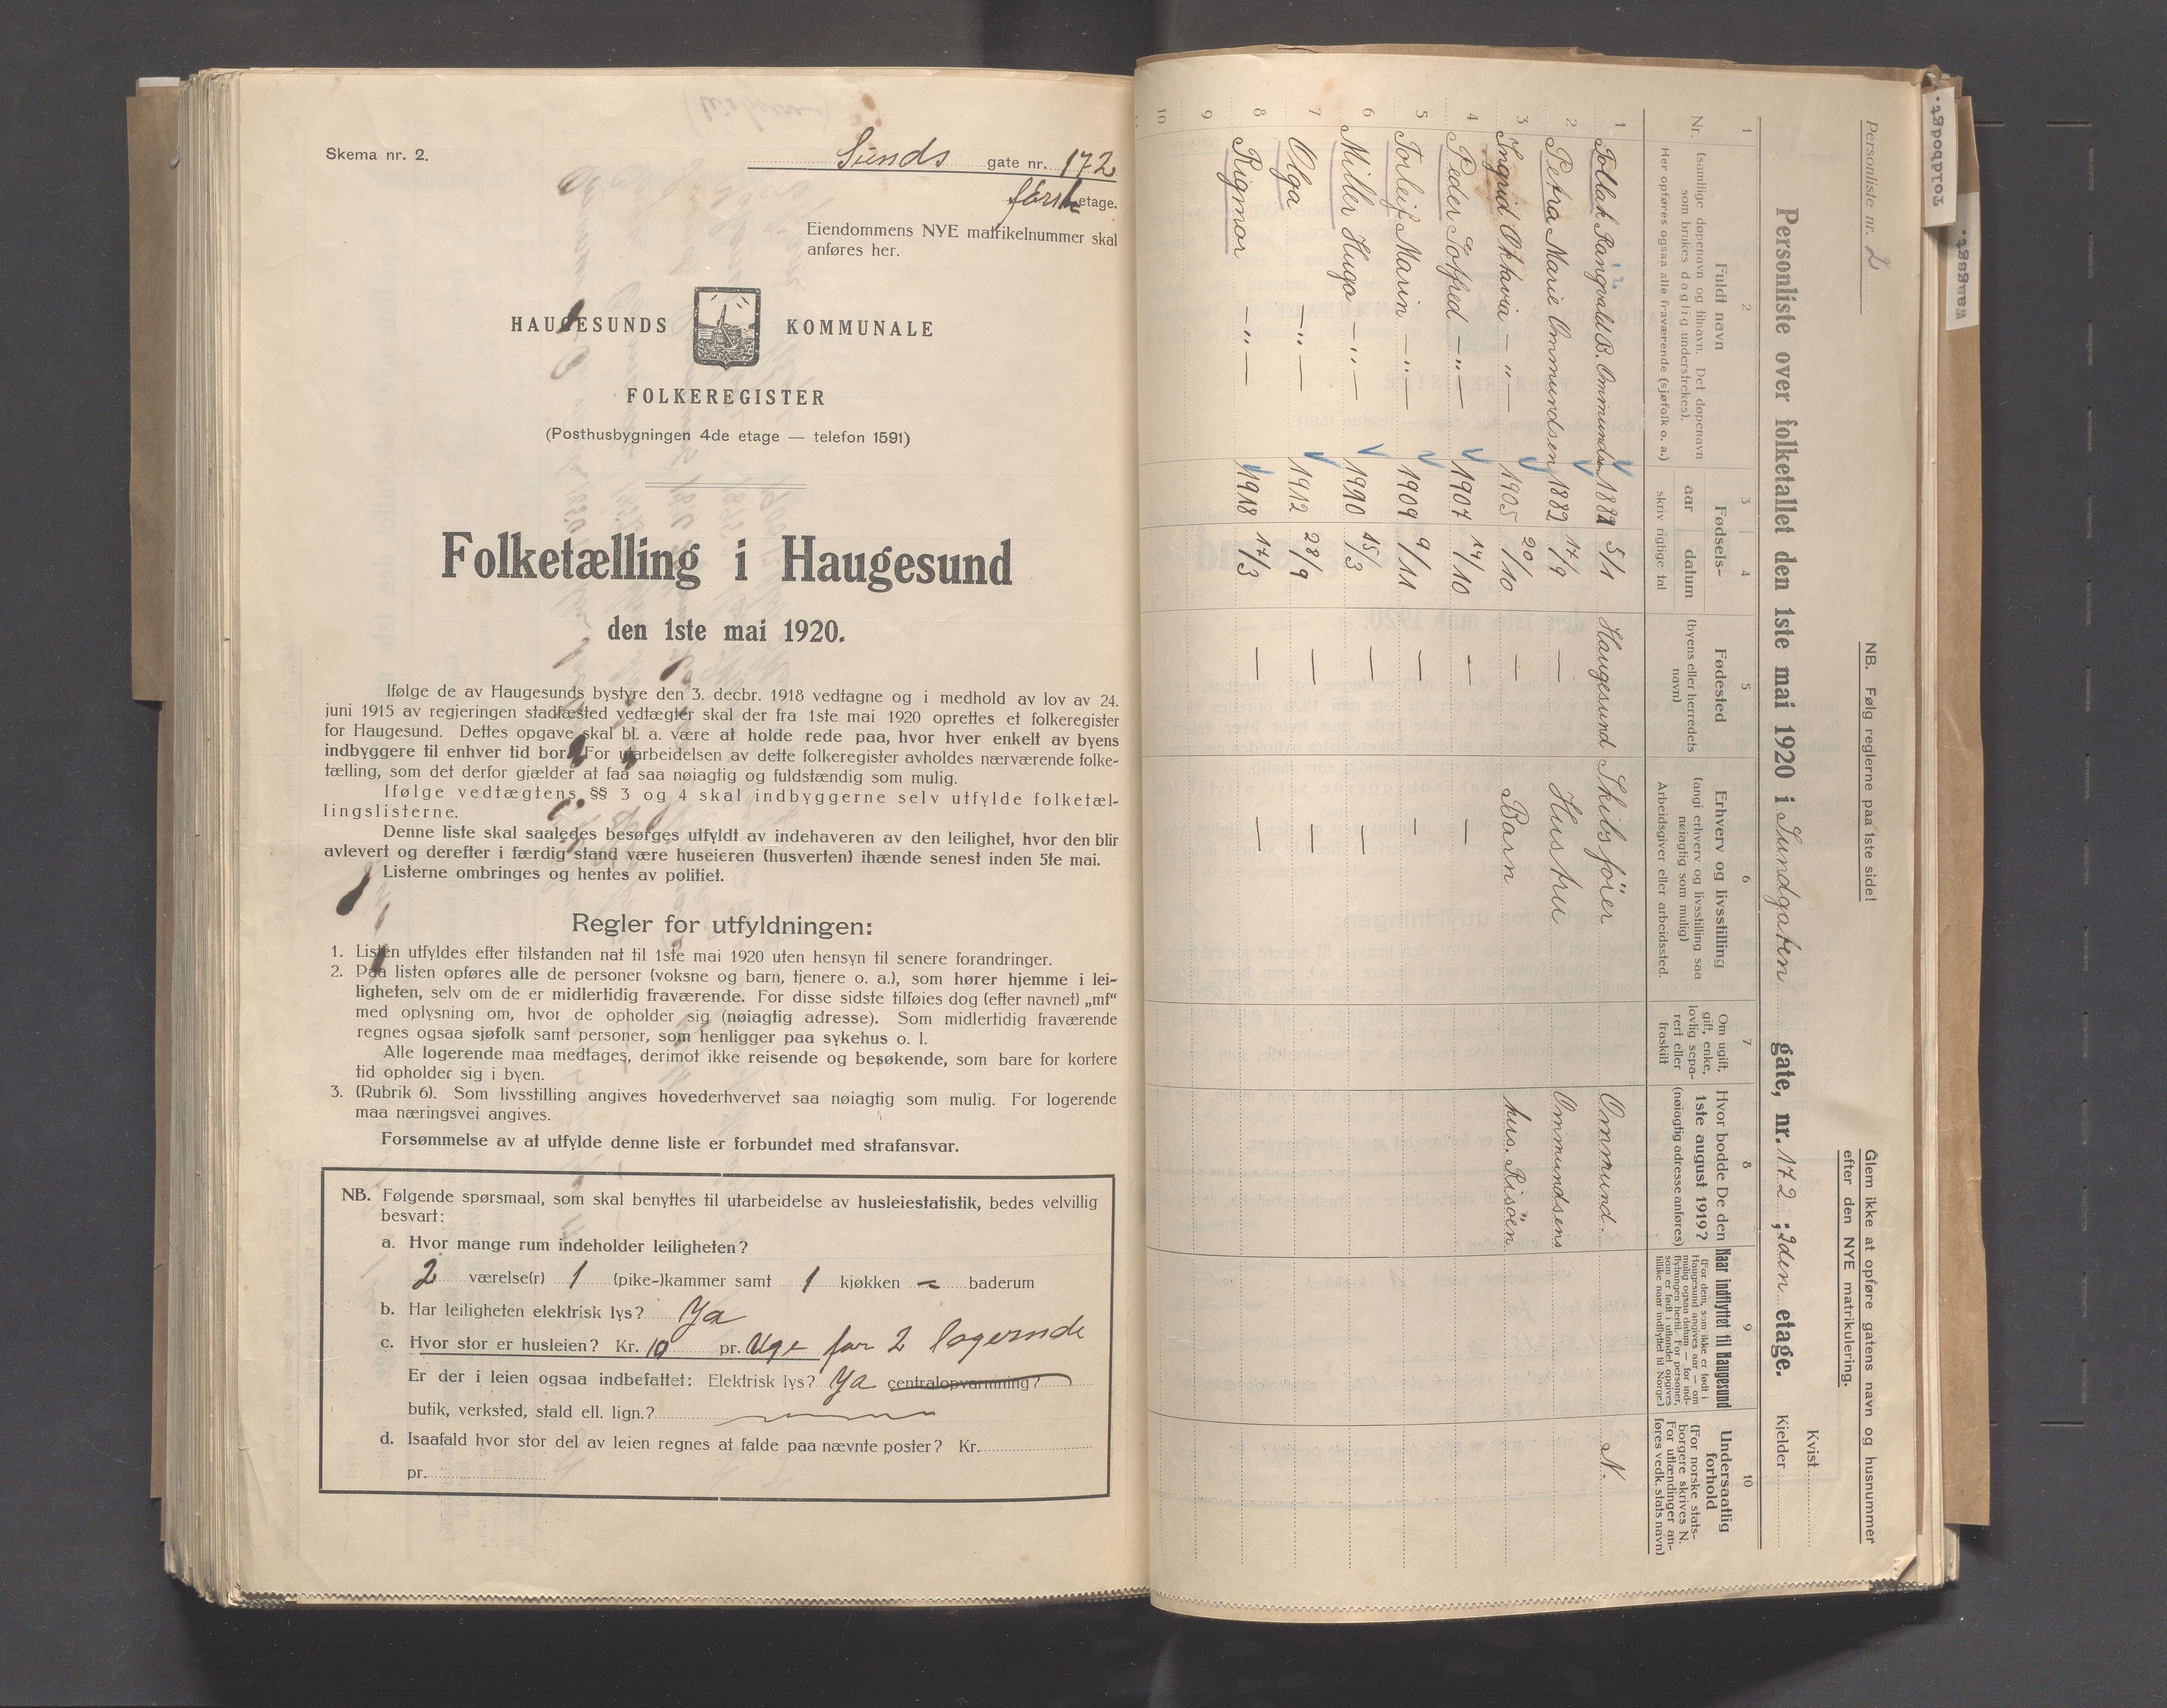 Skema nr. 2.
Sunds gate nr. 172
første etage.
Eiendommens NYE matrikelnummer skal
anføres her.
HAUGESUNDS KOMMUNALE
FOLKEREGISTER
(Posthusbygningen 4de etage — telefon 1591)
Folketælling i Haugesund
den 1ste mai 1920.
Ifølge de av Haugesunds bystyre den 3. decbr. 1918 vedtagne og i medhold av lov av 24.
juni 1915 av regjeringen stadfæsted vedtægter skal der fra 1ste mai 1920 oprettes et folkeregister
for Haugesund. Dettes opgave skal bl. a. være at holde rede paa, hvor hver enkelt av byens
indbyggere til enhver tid bor. For utarbeidelsen av dette folkeregister avholdes nærværende folke-
tælling, som det derfor gjælder at faa saa nøiagtig og fuldstændig som mulig.
Ifølge vedtægtens §§ 3 og 4 skal indbyggerne selv utfylde folketæl-
lingslisterne.
Denne liste skal saaledes besørges utfyldt av indehaveren av den leilighet, hvor den blir
avlevert og derefter i færdig stand være huseieren (husverten) ihænde senest inden 5te mai.
Listerne ombringes og hentes av politiet.
Regler for utfyldningen:
1. Listen utfyldes efter tilstanden nat til 1ste mai 1920 uten hensyn til senere forandringer.
2. Paa listen opføres alle de personer (voksne og barn, tjenere o. a.), som hører hjemme i lei-
ligheten, selv om de er midlertidig fraværende. For disse sidste tilføies dog (efter navnet) „mf“
med oplysning om, hvor de opholder sig (nøiagtig adresse). Som midlertidig fraværende
regnes ogsaa sjøfolk samt personer, som henligger paa sykehus o. l.
Alle logerende maa medtages, derimot ikke reisende og besøkende, som bare for kortere
tid opholder sig i byen.
3. (Rubrik 6). Som livsstilling angives hovederhvervet saa nøiagtig som mulig. For logerende
maa næringsvei angives.
Forsømmelse av at utfylde denne liste er forbundet med strafansvar.
NB. Følgende spørsmaal, som skal benyttes til utarbeidelse av husleiestatistik, bedes velvillig
besvart:
a. Hvor mange rum indeholder leiligheten?
2 værelse(r) 1 (pike-)kammer samt 1 kjøkken - baderum
b. Har leiligheten elektrisk lys? Ja
c. Hvor stor er husleien? Kr. 10 pr. Uge for 2 logernde
Er der i leien ogsaa indbefattet: Elektrisk lys? Ja centralopvarmning?
butik, verksted, stald ell. lign.?
d. Isaafald hvor stor del av leien regnes at falde paa nævnte poster? Kr.
pr.
Personliste nr. 2
NB. Følg reglerne paa 1ste side!
Glem ikke at opføre gatens navn og husnummer
efter den NYE matrikulering.
Kvist
Personliste over folketallet den 1ste mai 1920 i Sundgaten gate, nr. 172 ; 2den etage. Kjelder
1 2 3 4 5 6 7 8 9 10
Nr.
Fuldt navn
(samtlige døpenavn og tilnavn. Det døpenavn
som brukes daglig understrekes).
Her opføres ogsaa alle fraværende (sjøfolk o. a.)
Fødsels-
aar datum
skriv riglige tal
Fødested
(byens eller herredets
navn)
Erhverv og livsstilling
(angi erhverv og livsstilling saa
nøiagtig som mulig)
Arbeidsgiver eller arbeidssted.
Om ugift,
gift, enke,
lovlig sepa-
rert eller
fraskilt
Hvor bodde De den
1ste august 1919?
(nøiagtig adresse anføres)
Naar indflyttet til Haugesund
(For dem, som ikke er født i
Haugesund angives aar — om
mulig ogsaa datum — for ind-
flytningen hertil. For personer,
som er født i utlandet opgives
tillike naar indflyttet til Norge)
Undersaatlig
forhold
(For norske stats-
borgere skrives N.
For utlændinger an-
føres vedk. stats navn)
1 Tollak Rangvald B. Ommundsen 1882 5/1 Haugesund Skibsförer Ommund. N.
2 Petra Marie Ommundsen 1882 17/9 — Hustru Ommundsens
3 Ingrid Oktavia —"— 1905 20/10 — Barn hus. Risöen
4 Peder Toffred —"— 1907 14/10 — —
5 Torleif Marin —"— 1909 9/11 — —
6 Miller Hugo —"— 1910 15/3 — —
7 Olga —"— 1912 28/9 — —
8 Rigmor —"— 1918 17/3 — —
9
10
Torodbogt.
Vaagagt.